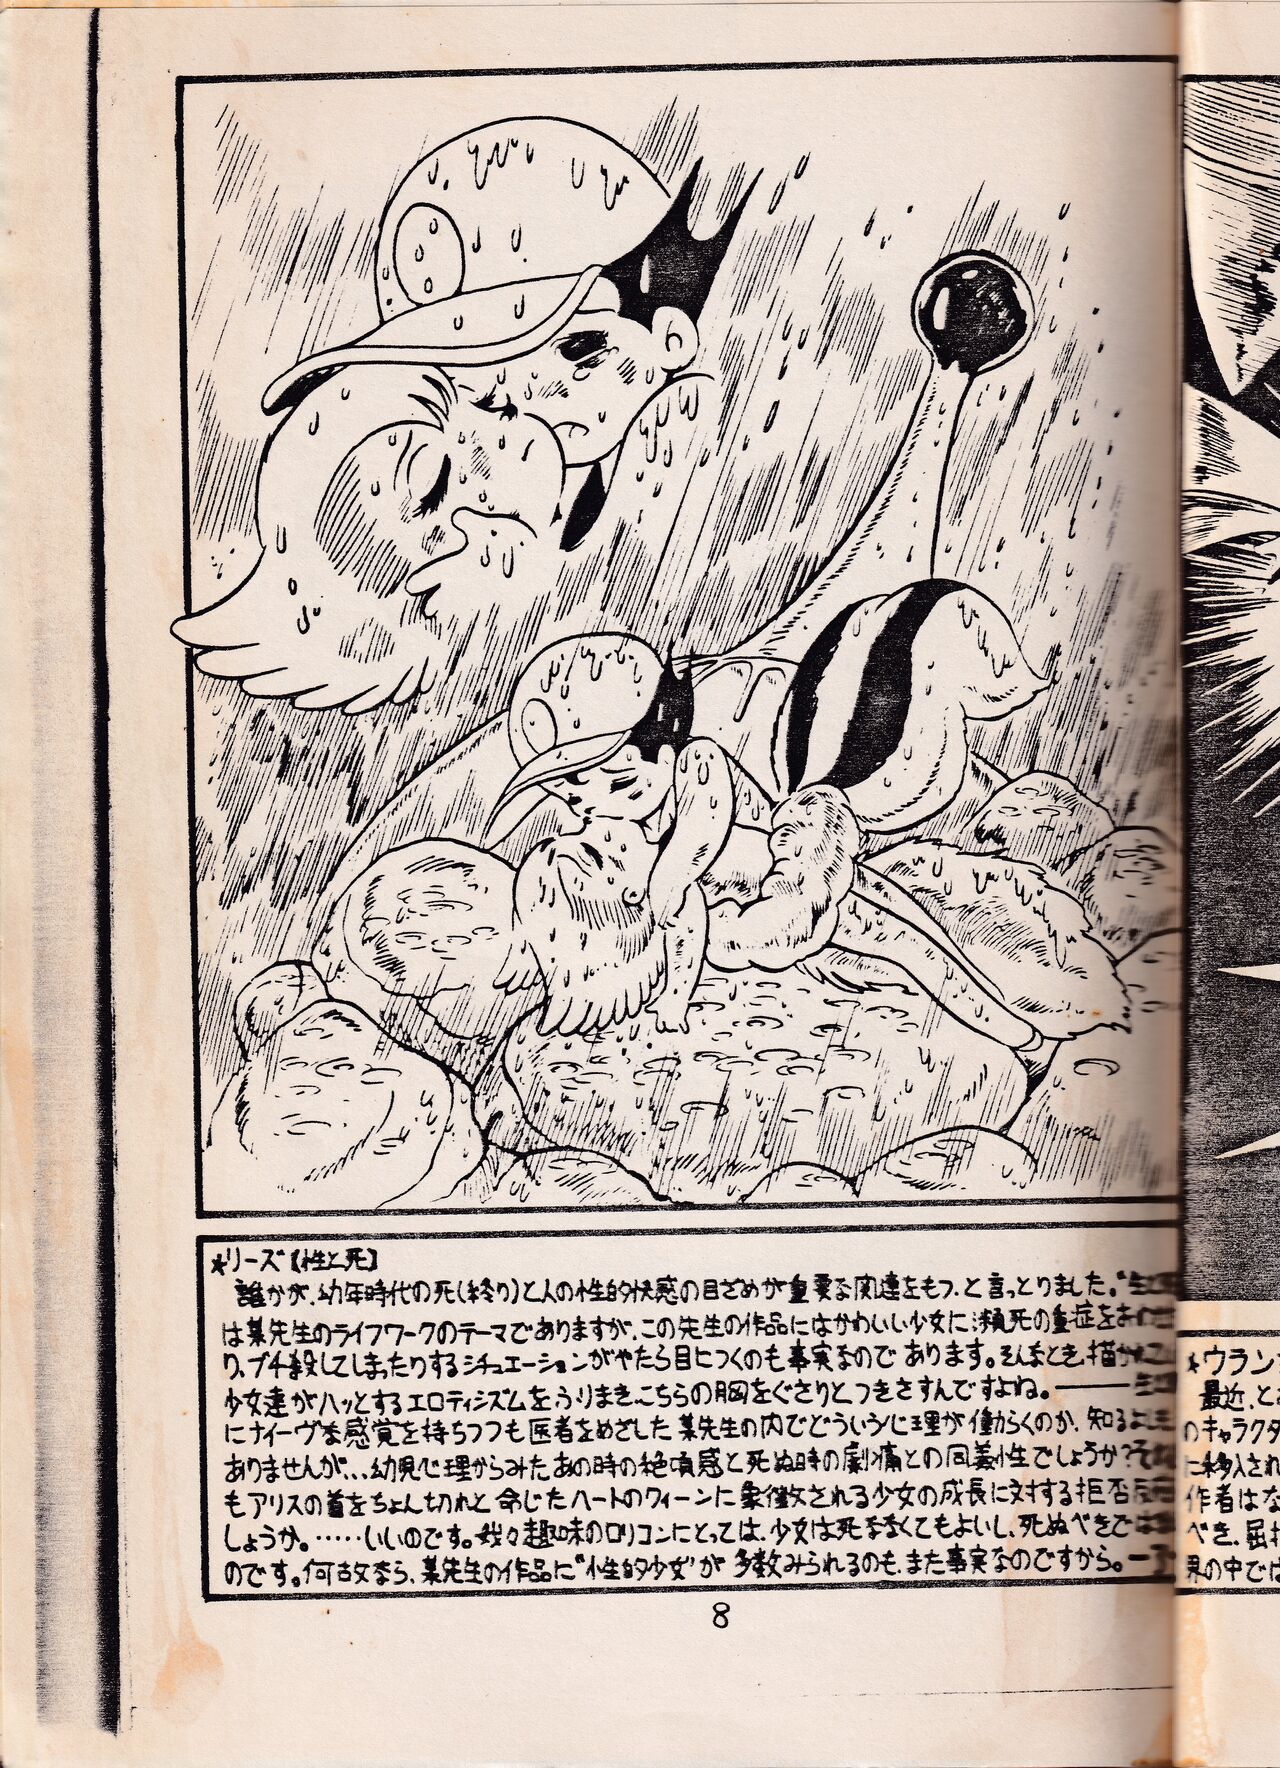 *リーズ【性と死】
誰かが、幼年時代の死(終り)と人の性的快感の目ざめが重要な関連をもつ、と言っとりました。
は某先生のライフワークのテーマでありますが、この先生の作品にはかわいい少女に瀕死の重症を
り、ブチ殺してしまったりするシチュエーションがやたら目につくのも事実なのであります。そんなとき、描か
少女達がハッとするエロティシズムをふりまき、こちらの胸をぐさりとつきさすんですよね。――
にナイーヴな感覚を持ちつつも医者をめざした某先生の内でどういう心理が働らくのか、知る
ありませんが、..幼児心理からみたあの時の絶頂感と死ぬ時の劇痛との同義性でしょうか?
もアリスの首をちょん切れと命じたハートのクィーンに象徴される少女の成長に対する拒否
しょうか。……いいのです。我々趣味のロリコンにとっては、少女は死ななくてもよいし、死ぬべきでは
のです。何故なら、某先生の作品に"性的少女"が多数みられるのも、また事実なのですから。
8
*ウラン
最近、と
のキャラクタ
に移入され
作者はな
べき、屈
界の中では